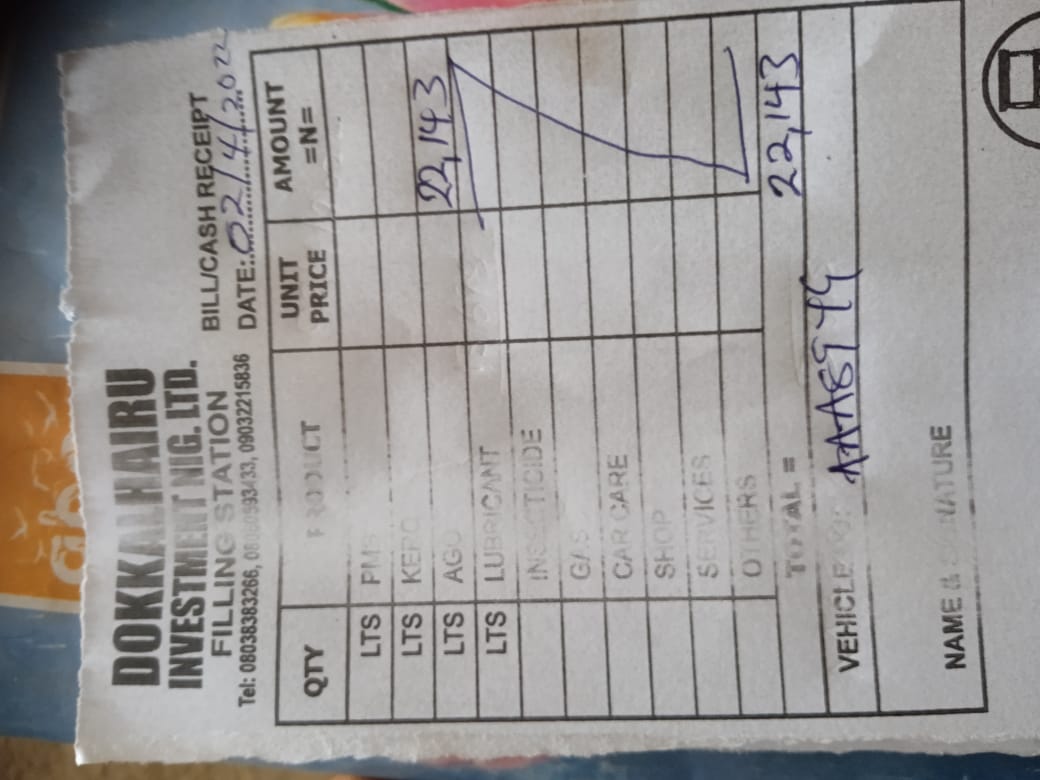 DOKKALHAIRU
INVESTMENT NIG. LTD.
FILLING STATION
BILL/CASH RECEIPT
Tel: 08038383266, 09032215836
DATE: 02/4/2022
QTY PRODUCT UNIT PRICE AMOUNT =N=
LTS PMS
LTS KERO
LTS AGO 22,143
LTS LUBRICANT
INSECTICIDE
GAS
CAR CARE
SHOP
SERVICES
OTHERS
TOTAL = 22,143
VEHICLE NO:
NAME & SIGNATURE